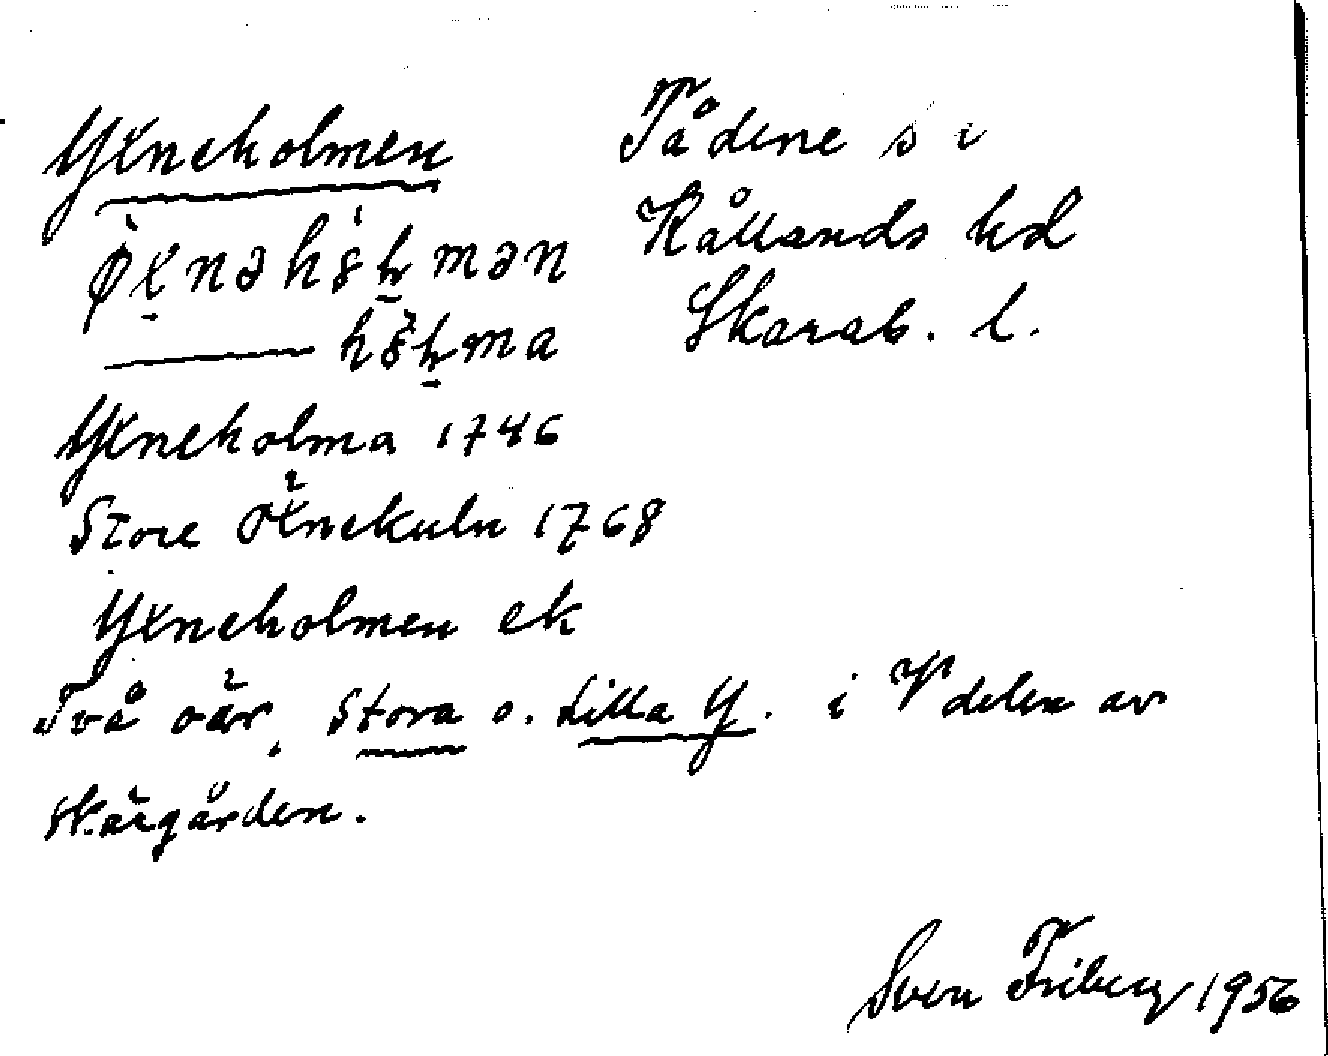 Yxneholmen
Tådene s i
Kållands hd
Skarab. l.
Yxneholma 1746
Store Öxnekuln 1768
Yxneholmen ek
Två öar, Stora o. Lilla Y. i V delen av
skärgården.
Sven Friberg 1956